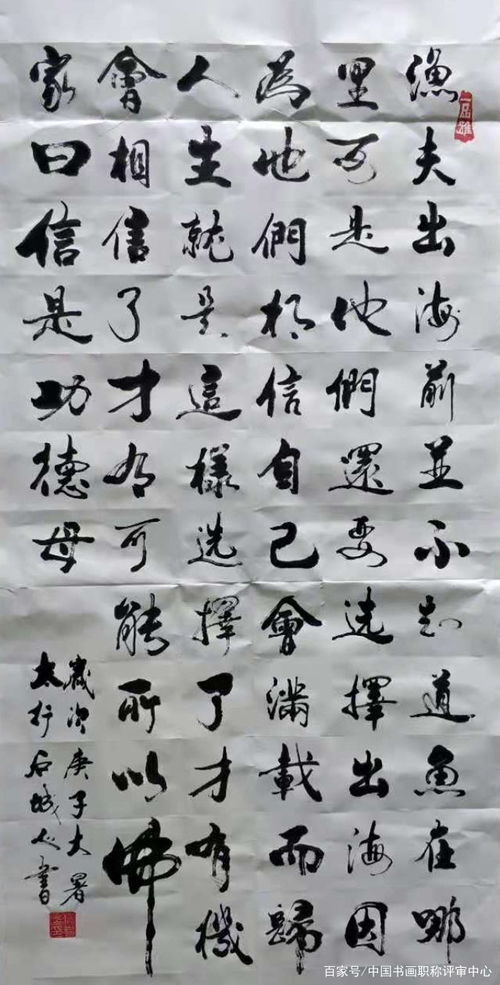 漁夫出海前並不知道魚在哪
里可是他們還要选擇出海因
為他們相信自己會滿載而歸
人生就是這樣选擇了才有機
會相信了才有可能所以佛
家曰信是功德母
歲次庚子大暑
太行石城人書
百家号/中国书画职称评审中心